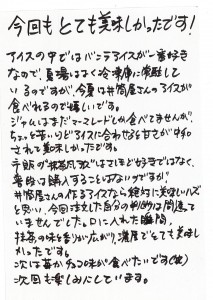 今回もとても美味しかったです!
アイスの中ではバニラアイスが一番好き
なので、夏場はよく冷凍庫に常駐して
いるのですが、今夏は井筒屋さんのアイスが
食べれるので嬉しいです。
ジャムはまだマーマレードしか食べてませんが、
ちょっと苦いけどアイスに合わせると甘さが中和
されて美味しかったです。
市販の"抹茶風"はさほど好きではなく、
普段は購入することはないのですが、
井筒屋さんの作るアイスなら絶対に美味しいハズ
と思い、今回注文した自分の判断は間違って
いませんでした。口に入れた瞬間、
抹茶の味と香りが広がり、濃厚でとても美味し
かったです。
次は苺かチョコ味が食べたいです(笑)
次回も楽しみにしています。